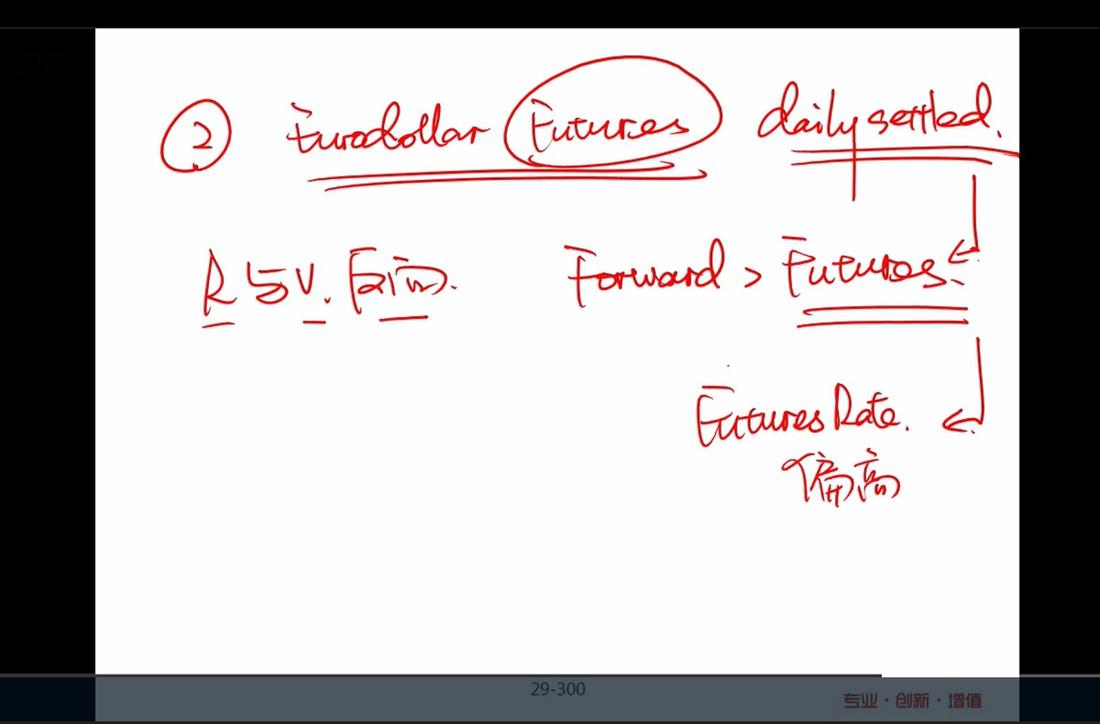 ② Eurodollar Futures daily settled.
R与V.反向. Forward > Futures.
Futures Rate.
偏高
29-300
专业·创新·增值